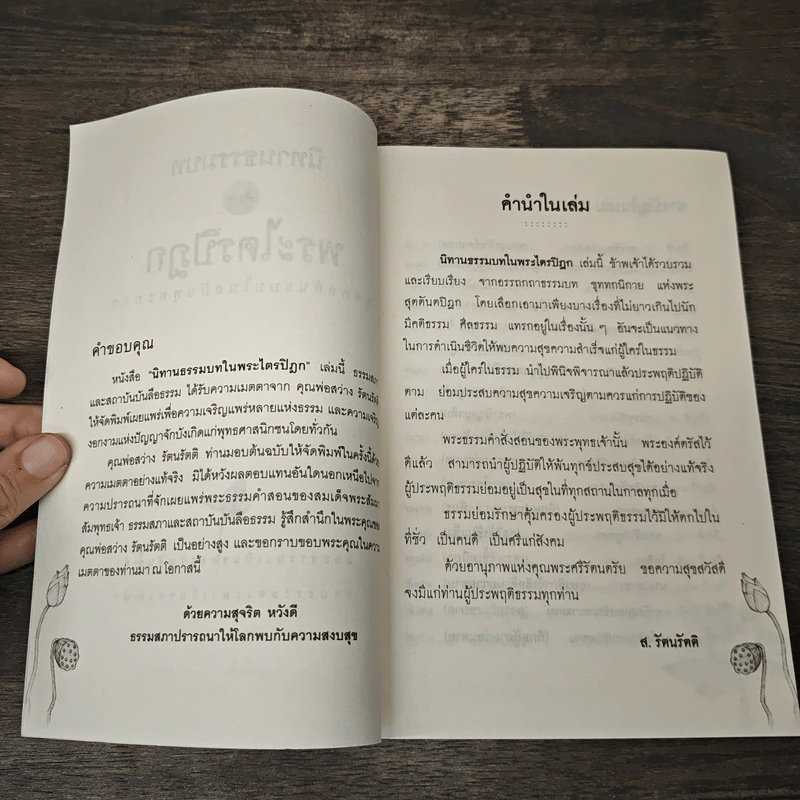 คำขอบคุณ
หนังสือ "นิทานธรรมบทในพระไตรปิฎก" เล่มนี้ ธรรมสภา
และสถาบันบันลือธรรม ได้รับความเมตตาจาก คุณพ่อสว่าง รัตนรัตติ
ให้จัดพิมพ์เผยแพร่เพื่อความเจริญแพร่หลายแห่งธรรม และความเจริญ
งอกงามแห่งปัญญาจักบังเกิดแก่พุทธศาสนิกชนโดยทั่วกัน
คุณพ่อสว่าง รัตนรัตติ ท่านมอบต้นฉบับให้จัดพิมพ์ในครั้งนี้ด้วย
ความเมตตาอย่างแท้จริง มิได้หวังผลตอบแทนอันใดนอกเหนือไปจาก
ความปรารถนาที่จักเผยแพร่พระธรรมคำสอนของสมเด็จพระสัมมา
สัมพุทธเจ้า ธรรมสภาและสถาบันบันลือธรรม รู้สึกสำนึกในพระคุณของ
คุณพ่อสว่าง รัตนรัตติ เป็นอย่างสูง และขอกราบขอบพระคุณในความ
เมตตาของท่านมา ณ โอกาสนี้
ด้วยความสุจริต หวังดี
ธรรมสภาปรารถนาให้โลกพบกับความสงบสุข
คำนำในเล่ม
นิทานธรรมบทในพระไตรปิฎก เล่มนี้ ข้าพเจ้าได้รวบรวม
และเรียบเรียง จากอรรถกถาธรรมบท ขุททกนิกาย แห่งพระ
สุตตันตปิฎก โดยเลือกเอามาเพียงบางเรื่องที่ไม่ยาวเกินไปนัก
มีคติธรรม ศีลธรรม แทรกอยู่ในเรื่องนั้น ๆ อันจะเป็นแนวทาง
ในการดำเนินชีวิตให้พบความสุขความสำเร็จแก่ผู้ใคร่ในธรรม
เมื่อผู้ใคร่ในธรรม นำไปพินิจพิจารณาแล้วประพฤติปฏิบัติ
ตาม ย่อมประสบความสุขความเจริญตามควรแก่การปฏิบัติของ
แต่ละคน
พระธรรมคำสั่งสอนของพระพุทธเจ้านั้น พระองค์ตรัสไว้
ดีแล้ว สามารถนำผู้ปฏิบัติให้พ้นทุกข์ประสบสุขได้อย่างแท้จริง
ผู้ประพฤติธรรมย่อมอยู่เป็นสุขในที่ทุกสถานในกาลทุกเมื่อ
ธรรมย่อมรักษาคุ้มครองผู้ประพฤติธรรมไว้มิให้ตกไปใน
ที่ชั่ว เป็นคนดี เป็นศรีแก่สังคม
ด้วยอานุภาพแห่งคุณพระศรีรัตนตรัย ขอความสุขสวัสดี
จงมีแก่ท่านผู้ประพฤติธรรมทุกท่าน
ส. รัตนรัตติ